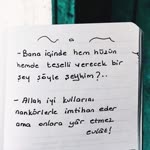 - Bana içinde hem hüzün
hemde teselli verecek bir
şey şöyle şeyhim?..
- Allah iyi kullarını
nankörlerle imtihan eder
ama onlara yâr etmez
evlât!